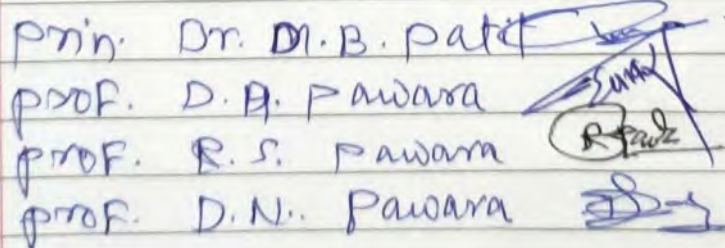 Prin. Dr. M.B. Patil
Prof. D.A. Pawara
Prof. R.S. Pawara
Prof. D.N. Pawara